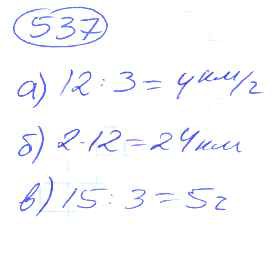 537
а) 12 : 3 = 4 км/ч
б) 2 · 12 = 24 км
в) 15 : 3 = 5 ч